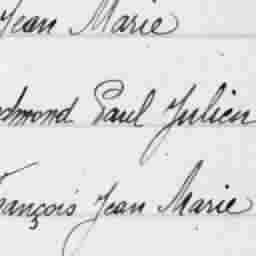 Jean Marie
Edmond Paul Julien
François Jean Marie